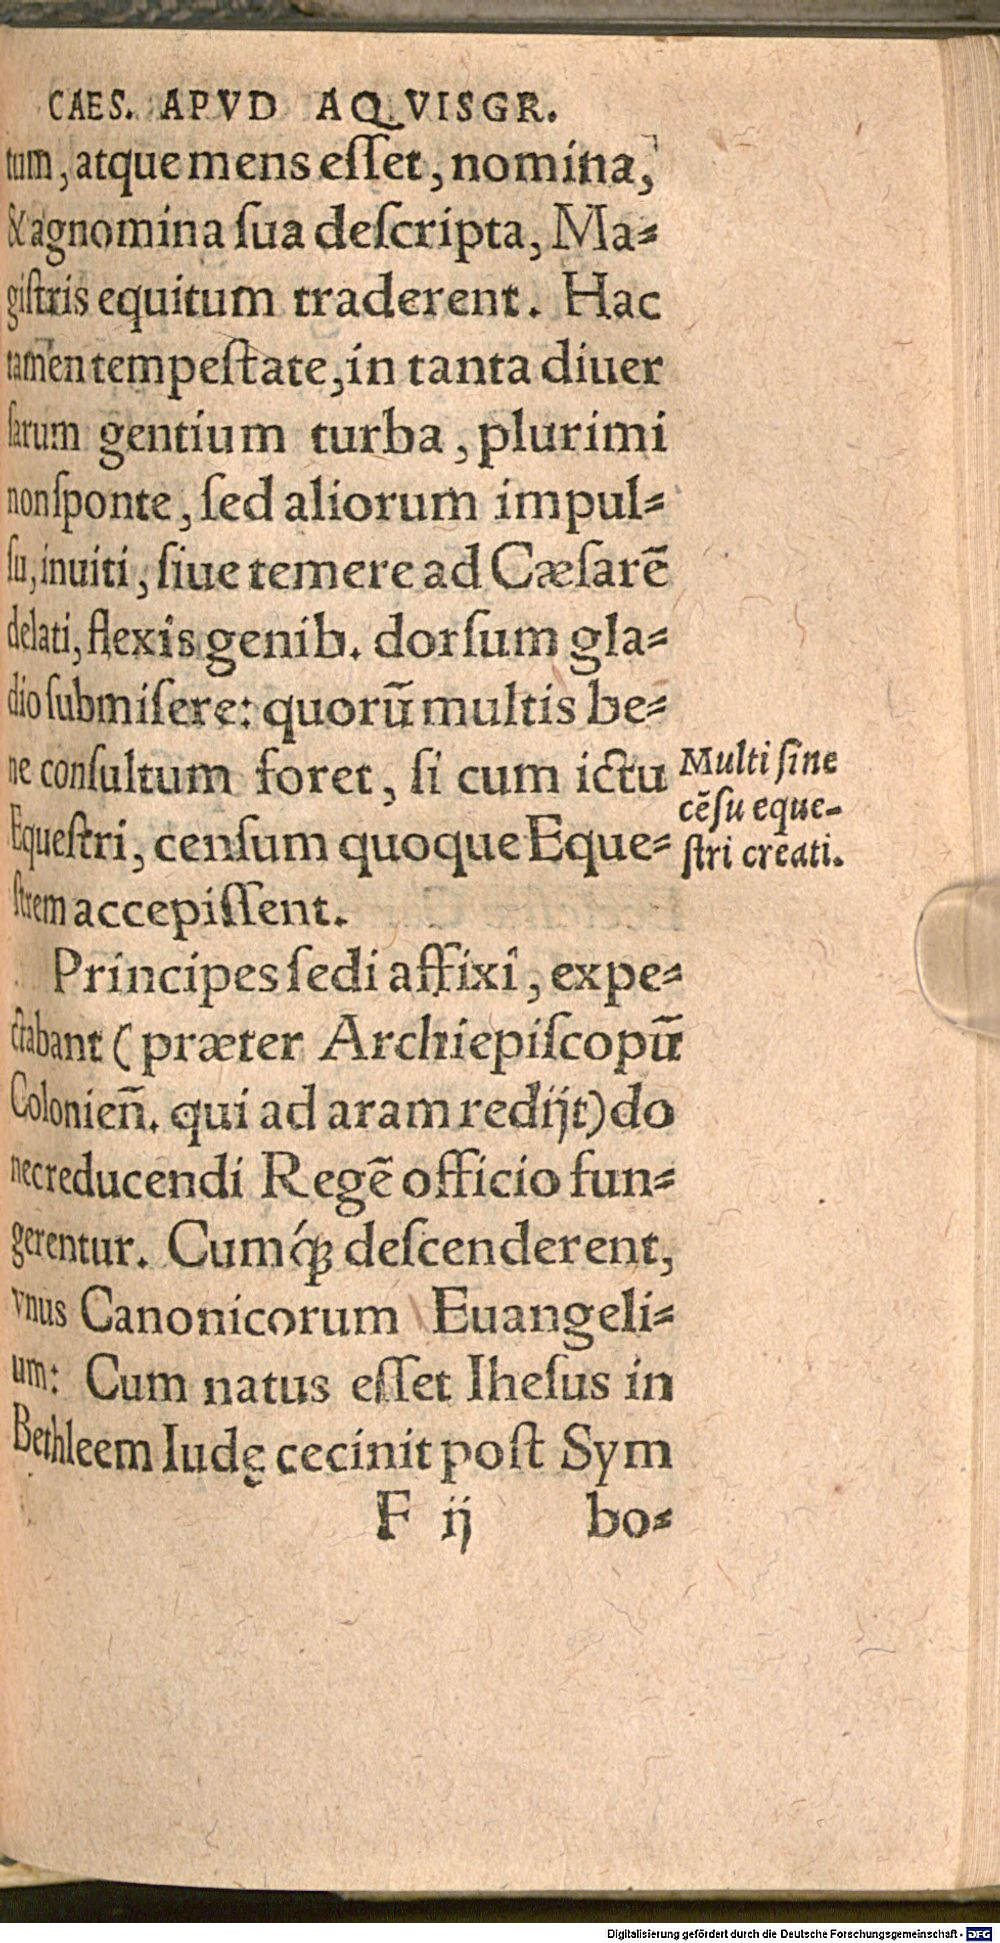 CAES. APVD AQVISGR.
tum, atque mens eſſet, nomina,
& agnomina ſua deſcripta, Ma⸗
giſtris equitum traderent. Hac
tamen tempeſtate, in tanta diuer
ſarum gentium turba, plurimi
non ſponte, ſed aliorum impul⸗
ſu, inuiti, ſiue temere ad Cæſarē
delati, flexis genib. dorſum gla⸗
dio ſubmiſere: quorū multis be⸗
ne conſultum foret, ſi cum ictu
Equeſtri, cenſum quoque Eque⸗
ſtrem accepiſſent.
Multi ſine
cēſu eque-
ſtri creati.
Principes ſedi affixi, expe⸗
ctabant (præter Archiepiſcopū
Colonien̄. qui ad aram redijt) do
nec reducendi Regē officio fun⸗
gerentur. Cumq́ꝫ deſcenderent,
vnus Canonicorum Euangeli⸗
um: Cum natus eſſet Iheſus in
Bethleem Iudę cecinit poſt Sym
F ij bo⸗
Digitalisierung gefördert durch die Deutsche Forschungsgemeinschaft - DFG